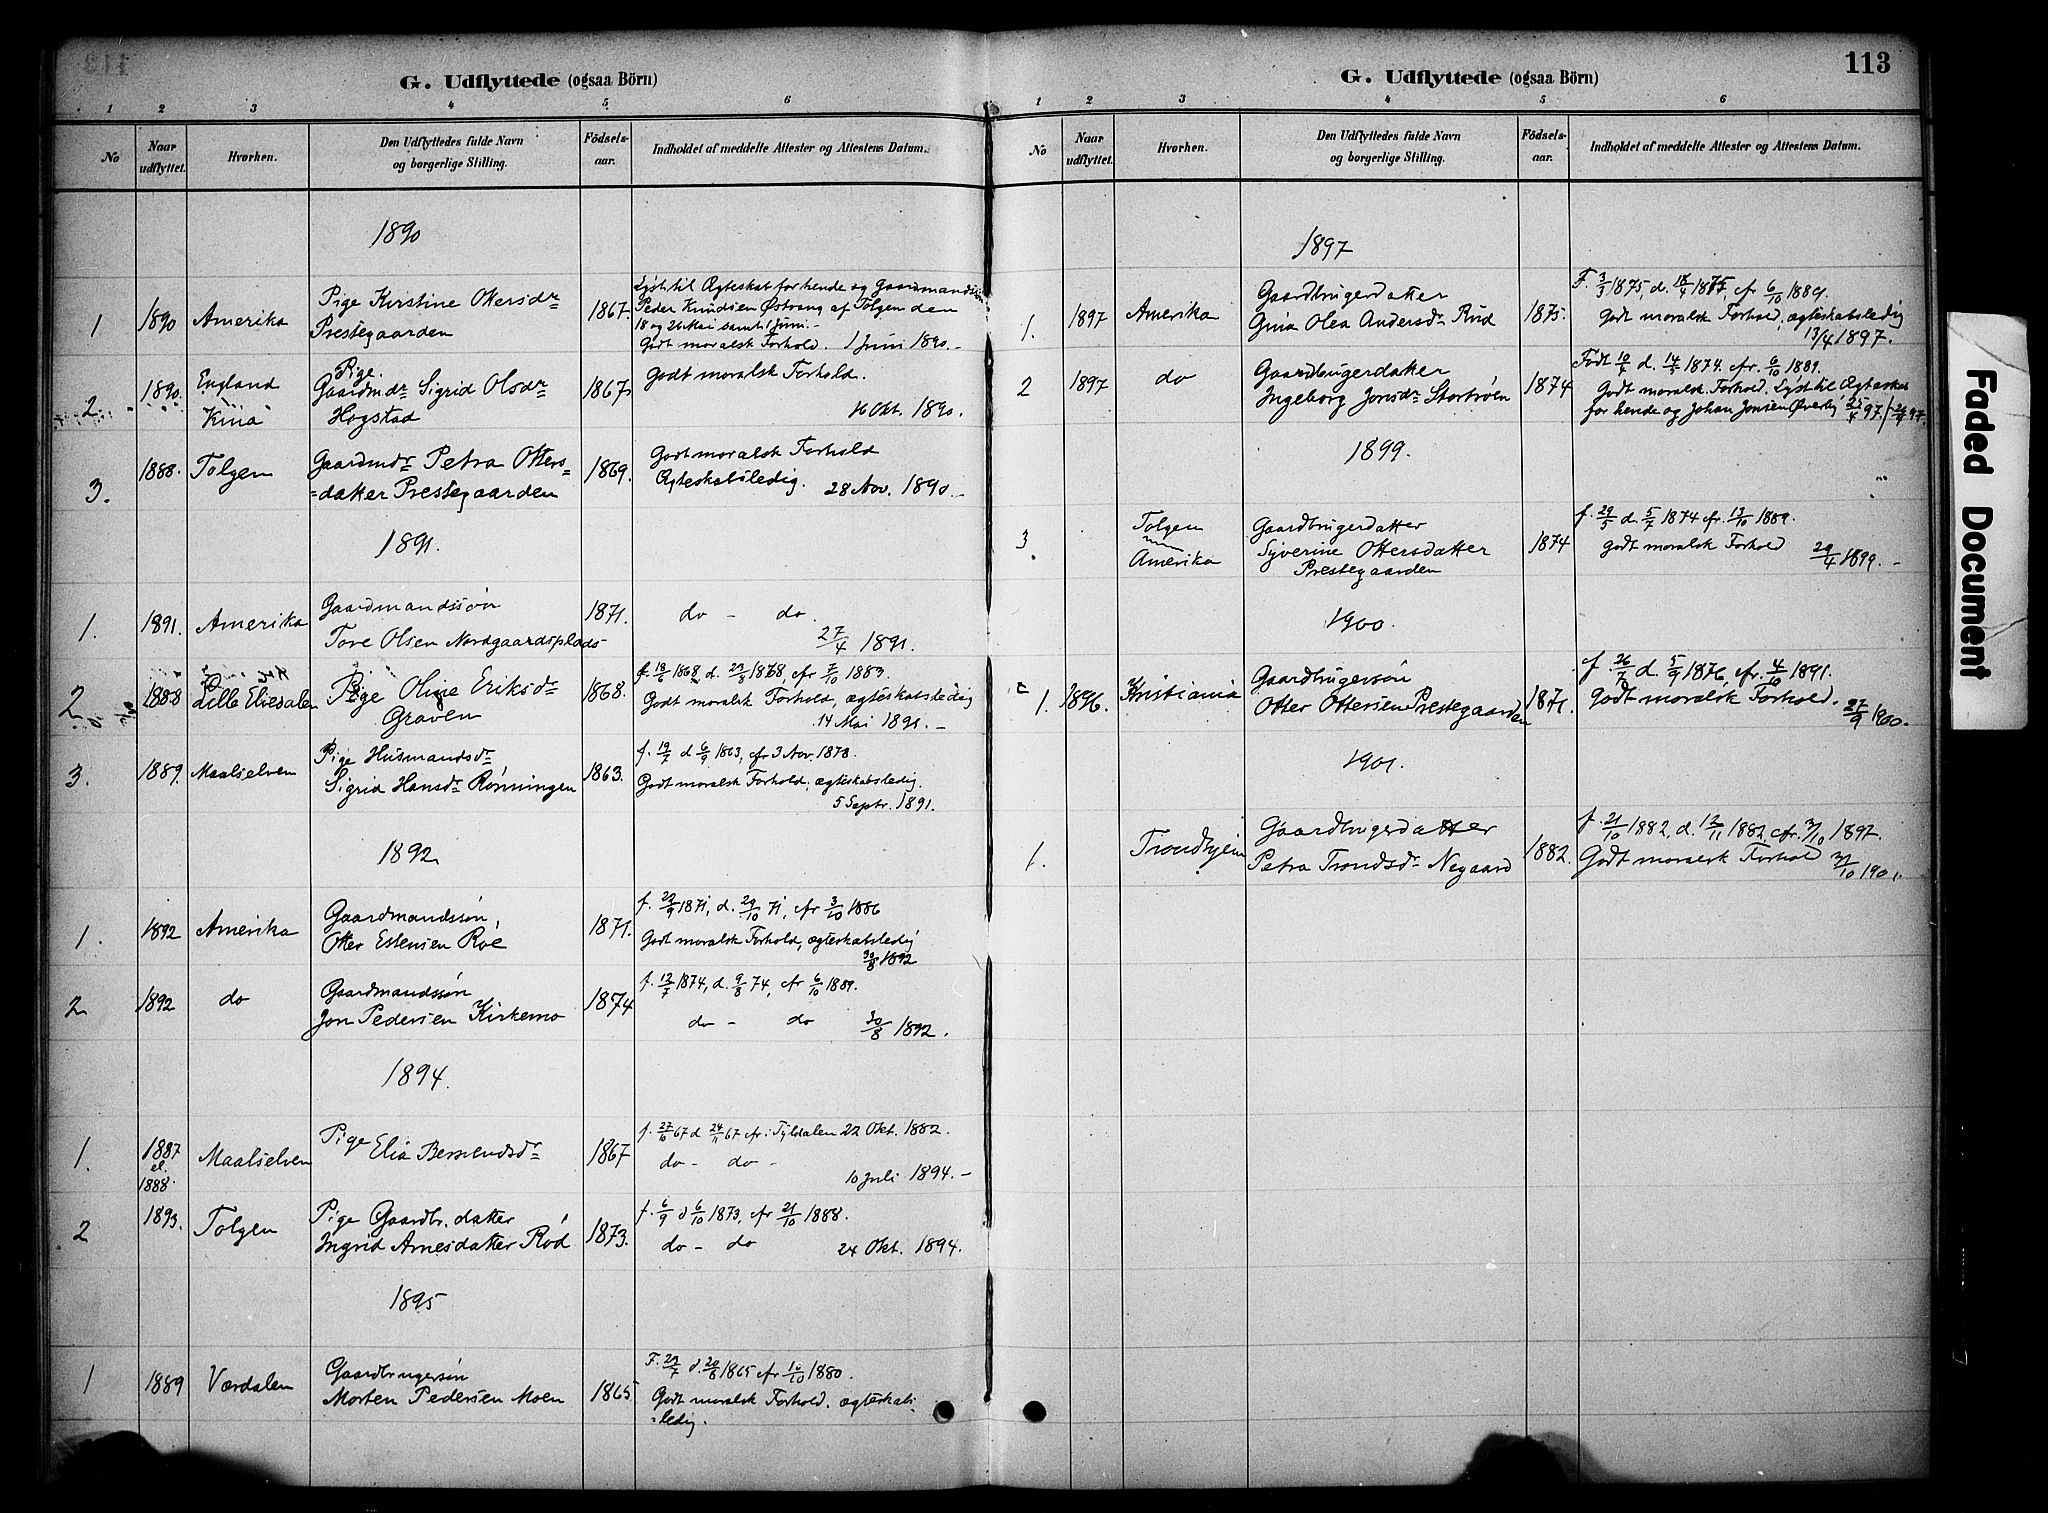 113
G. Udflyttede (ogsaa Börn)
1 2 3 4 5 6
No
Naar udflyttet.
Hvorhen.
Den Udflyttedes fulde Navn og borgerlige Stilling.
Födsels-aar.
Indholdet af meddelte Attester og Attestens Datum.
1890
1 1890 Amerika Pige Kirstine Otersdr 1867. Lyst til Ægteskab for hende og Gaardmandssön
Prestegaarden Peder Knudsen Østvang af Tolgen den
18 og 26 Mai samt 1 Juni. –
Godt moralsk Forhold. 1 Juni 1890. –
2. 1890. England Pige. 1867 Godt moralsk Forhold.
Kina Gaardmdr Sigrid Olsdr
Hogstad 16 Okt. 1890.
3. 1888. Tolgen Gaardmdr Petra Otters= 1869. Godt moralsk Forhold
=datter Prestegaarden Ægteskabsledig. 28 Nov. 1890. –
1891.
1. 1891. Amerika Gaardmandssön 1871. do – do.
Tore Olsen Nordgaardsplads 27/4 1891.
2 1888 Lille Elvedalen Pige Oline Eriksdr 1868. f. 18/6 1868, d. 23/8 1868, cfr 7/10 1883
Graven Godt moralsk Forhold, ægteskabsledig
14 Mai 1891. –
3. 1889. Maalselven Pige Husmandsdr 1863. f. 19/7 d. 6/9 1863, cfr 3 Nov. 1878.
Sigrid Hansdr Rønningen Godt moralsk Forhold, ægteskabsledig.
5 Septr. 1891.
1892
1. 1892 Amerika Gaardmandssön, 1871. f. 29/9 1871, d. 29/10 71, cfr 3/10 1886
Otter Estensen Röe Godt moralsk Forhold, ægteskabsledig
30/8 1892
2 1892 do Gaardmandssön 1874 f. 12/7 1874, d. 9/8 74, cfr 6/10 1889.
Jon Pedersen Kirkemo do – do 30/8 1892.
1894.
1. 1887 el. 1888. Maalselven Pige Elia Berntsdr 1867 f. 27/10 67 d 24/11 67 cfr. i Tyldalen 22 Okt. 1882.
do – do – 10 Juli 1894. –
2 1893. Tolgen Pige Gaardbr. datter 1873. f. 6/9 d 6/10 1873, cfr 21/10 1888.
Ingrid Arnesdatter Röd do – do 24 Okt. 1894.
1895
1 1889 Værdalen Gaardbrugersön 1865 F. 23/7 d. 20/8 1865 cfr 10/10 1880.
Morten Pedersen Moen Godt moralsk Forhold. ægteskabs=
=ledig.
G. Udflyttede (ogsaa Börn)
1 2 3 4 5 6
No
Naar udflyttet.
Hvorhen.
Den Udflyttedes fulde Navn og borgerlige Stilling.
Födsels-aar.
Indholdet af meddelte Attester og Attestens Datum.
1897
1. 1897 Amerika Gaardbrugerdatter 1875. F. 3/3 1875, d. 18/4 1875 cfr 6/10 1889.
Gina Olea Andersdr Rud Godt moralsk Forhold, ægteskabsledig
13/4 1897.
2 1897 do Gaardbrugerdatter 1874 Født 10/4 d. 14/5 1874. cfr. 6/10 1889.
Ingeborg Jonsdr Stortröen Godt moralsk Forhold. Lyst til Ægteskab
for hende og Johan Jonsen Øverby 25/4 97.
1899.
3. Tolgen Gaardbrugerdatter 1874 f. 29/5 d. 5/7 1874 cfr. 13/10 1889.
Amerika Syverine Ottersdatter Godt moralsk Forhold 29/4 1899. –
Prestegaarden
1900.
1. 1896. Kristiania Gaardbrugersön 1876. f. 26/7 d. 5/9 1876, cfr. 4/10 1891.
Otter Ottersen Prestegaarden Godt moralsk Forhold. 27/9 1900.
1901.
1. Trondhjem Gaardbrugerdatter 1882. f. 21/10 1882, d. 12/11 1882 cfr. 3/10 1897.
Petra Trondsdr Negaard Godt moralsk Forhold 31/10 1901.
Faded Document